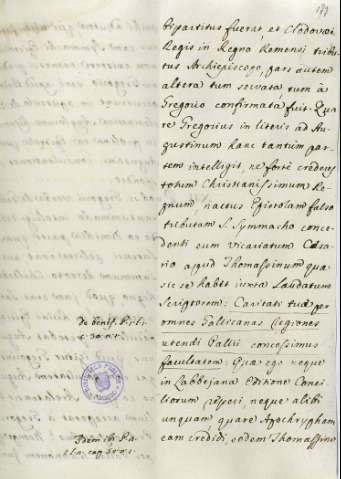 bipartitus fuerat, et Clodovæi
Regis in Regno Remensi tribu-
tus Archiepiscopo, pars autem
altera tum servata tum à
Gregorio confirmata fuit. Qua-
re Gregorius in literis ad Au-
gustinum hanc tantùm par-
tem intelligit, ne fortè credens
totum Christianissimum Re-
gnum nactus Epistolam falsò
tributam S. Symmacho conce-
denti eum Vicariatum Cæsa-
rio apud Thomassinum qua-
sic se habet iuxta Laudatum
Scriptorem: Caritati tuæ per
omnes Gallicanas Regiones
utendi Pallii concessimus
facultatem: Quæ ego neque
in Labbejana Editione Conci-
liorum reperi, neque alibi
unquam quare Apochrypham
eam credidi, eodem Thomassino
de benef. P. 1. l. 1
c. 30. n. 5
Idem ibi P. 2
l. 1. cap.